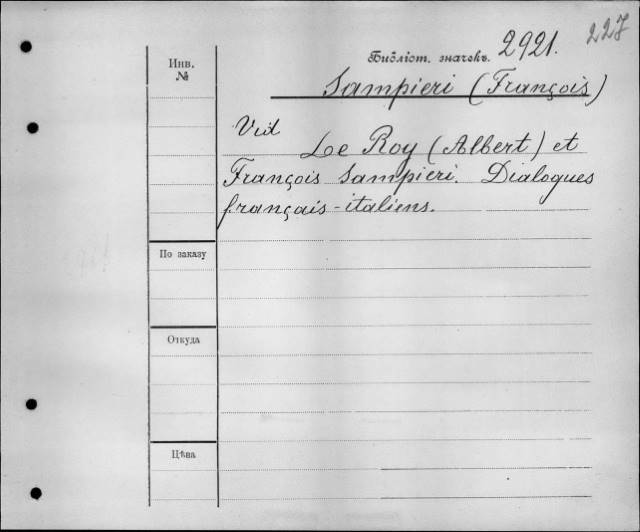 227
Библіот. значекъ. 2921.
Инв.
№
Sampieri (François)
Vid
Le Roy (Albert) et
François Sampieri. Dialogues
français-italiens.
По заказу
Откуда
Цѣна